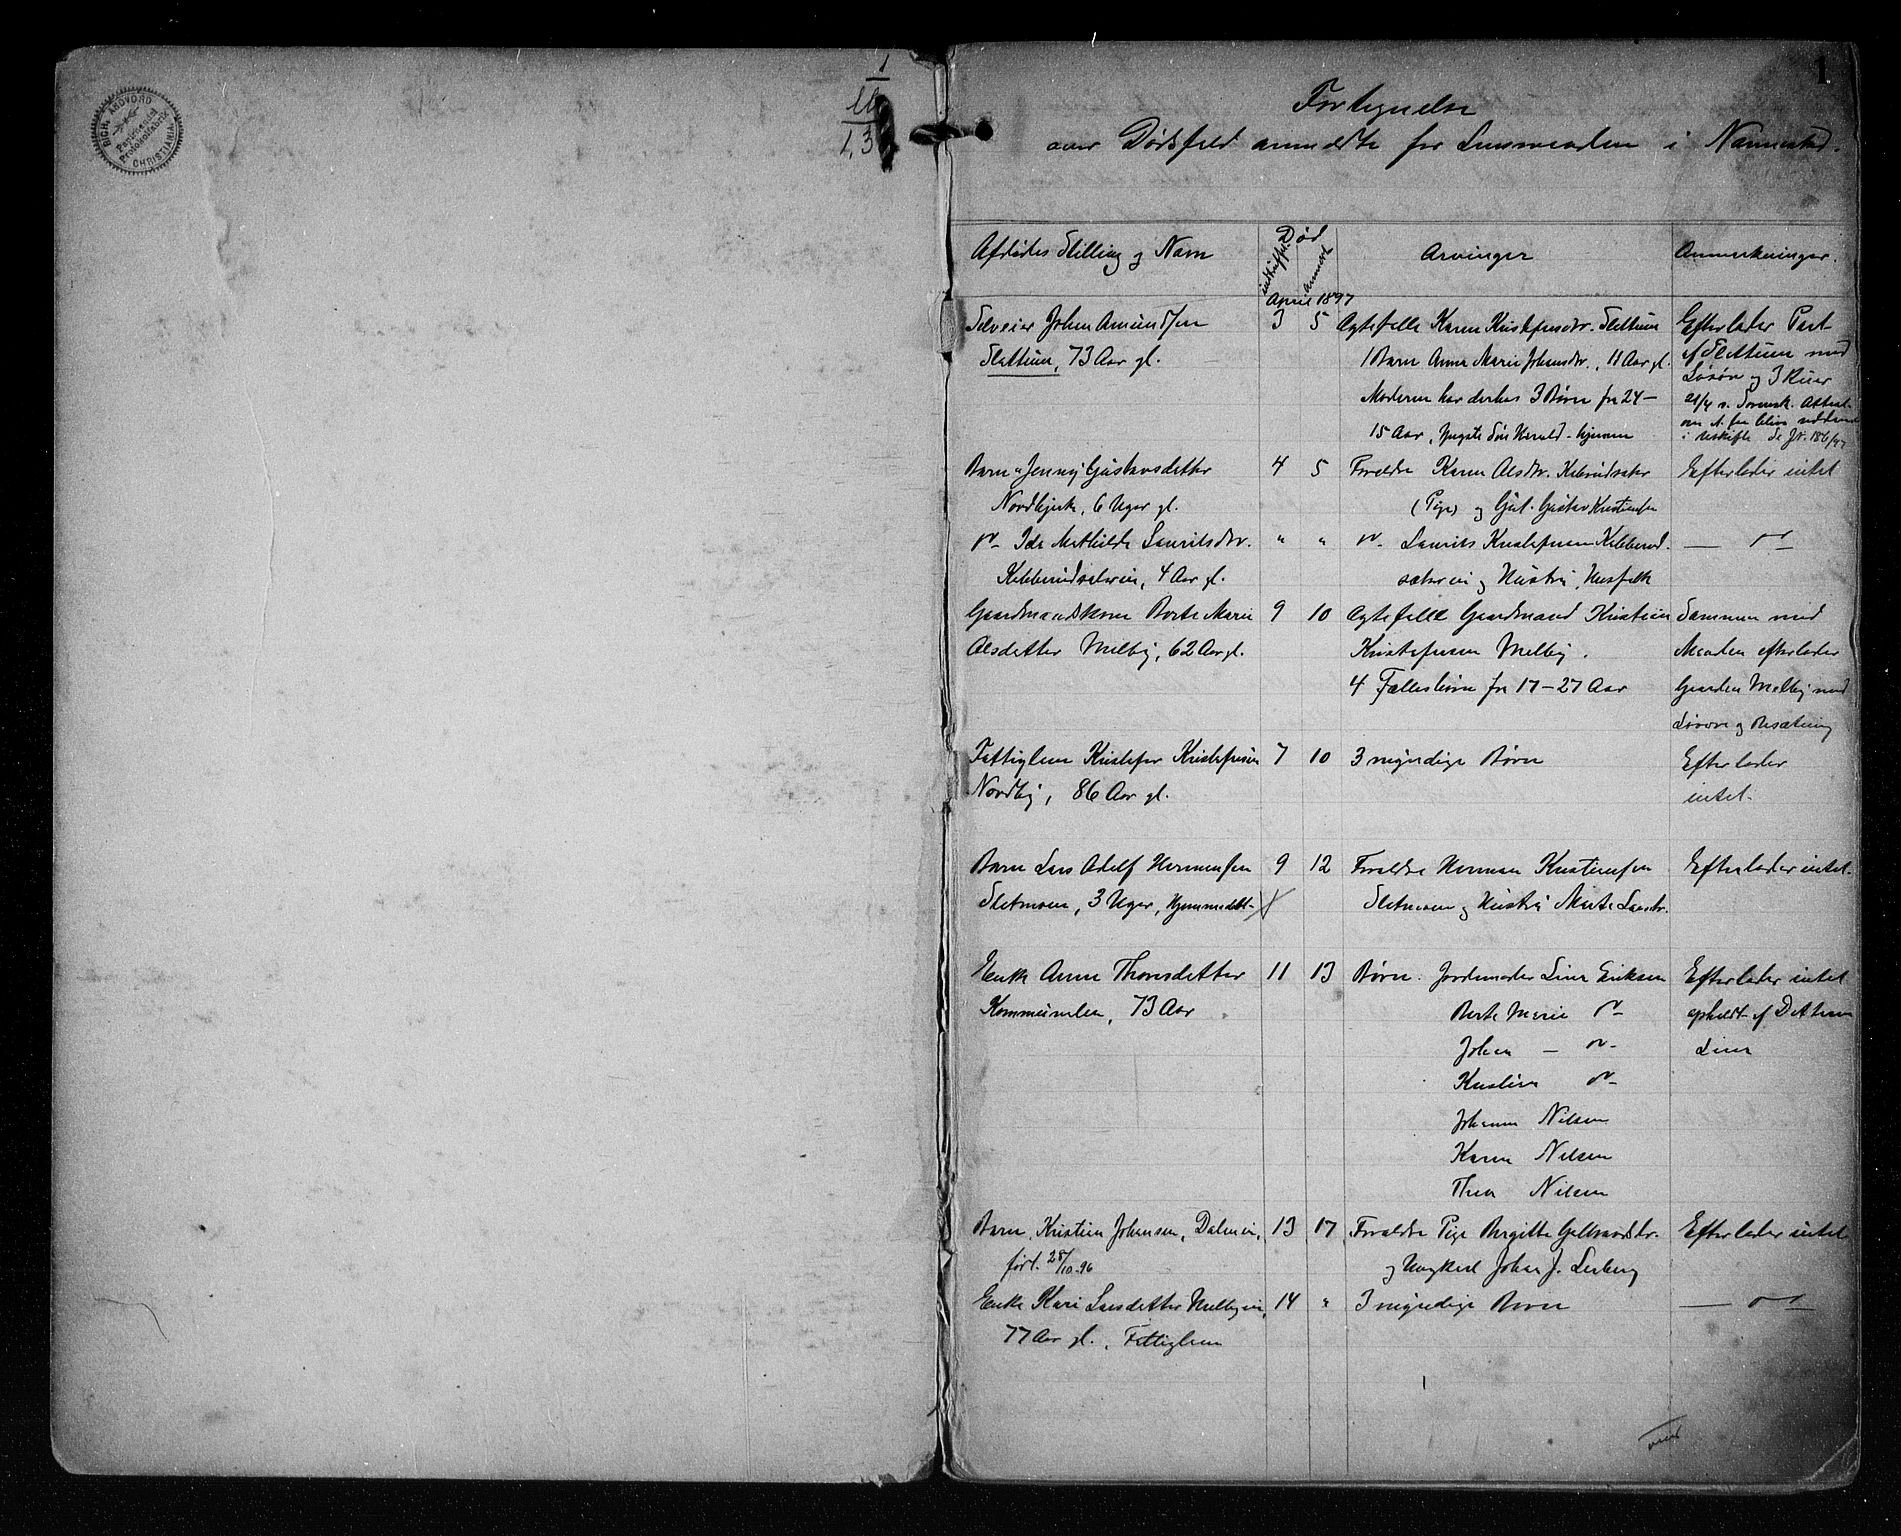 RICH. ANDVORD
Papirhandel
Protokolfabrik
CHRISTIANIA
1
1,3
1
Fortegnelse
over Dødsfald anmeldte for Lensmanden i Nannestad.
Afdødes Stilling og Navn
Død
indtruffet
anmeldt
Arvinger
Anmerkninger.
April 1897
Selveier Johan Amundsen
Slettum, 73 Aar gl.
3 5
Ægtefelle Karen Kristofersdtr. Slettum
1 Barn Anne Marie Johansdtr., 11 Aar gl.
Moderen har derhos 3 Børn fra 24 –
15 Aar, Yngste Søn Harald – hjemme
Efterlader Part
af Slettum med
Løsøre og 3 Kuer
Barn Jenny Gustavsdatter
Nordbjerke, 6 Uger gl.
4 5
Forældre Karen Olsdtr. Kebberudsæter
(Pige) og Gustav Kristiansen
Efterlader intet
" Ida Mathilde Lauritsdtr.
Kebberudsæteren, 4 Aar gl.
" "
" Laurits Kristofersen Kebberud-
sæteren og Hustru, Husfolk
— " —
Gaardmandskone Berte Marie
Olsdatter Melby, 62 Aar gl.
9 10
Ægtefelle Gaardmand Kristian
Kristofersen Melby.
4 Fællesbørn fra 17 – 27 Aar
Sammen med
Manden efterlader
Gaarden Melby med
Løsøre og Besætning
Fattiglem Kristofer Kristofersen
Nordby, 86 Aar gl.
7 10
3 myndige Børn
Efterlader
intet.
Barn Lars Adolf Hermansen
Sletmoen, 3 Uger, Hjemmedøbt
9 12
Forældre Herman Kristiansen
Sletmoen og Hustru Marte Larsdtr.
Efterlader intet.
Enke Anne Thoresdatter
Kommunelem, 73 Aar
11 13
Børn. Jordemoder Lina Eriksen
Berte Marie "
Johan — "
Kristine "
Johanne Nilsen
Karen Nilsen
Thea Nilsen
Efterlader intet
opholdt af Datteren
Lina
Barn, Kristian Johansen, Dalmeien,
født 28/10-96
13 17
Forældre Pige Birgitte Gulbrandsdtr.
og Ungkarl Johan J. Lesberg
Efterlader intet
Enke Kari Larsdatter Melbyeie,
77 Aar gl., Fattiglem
14 "
3 myndige Børn
— " —